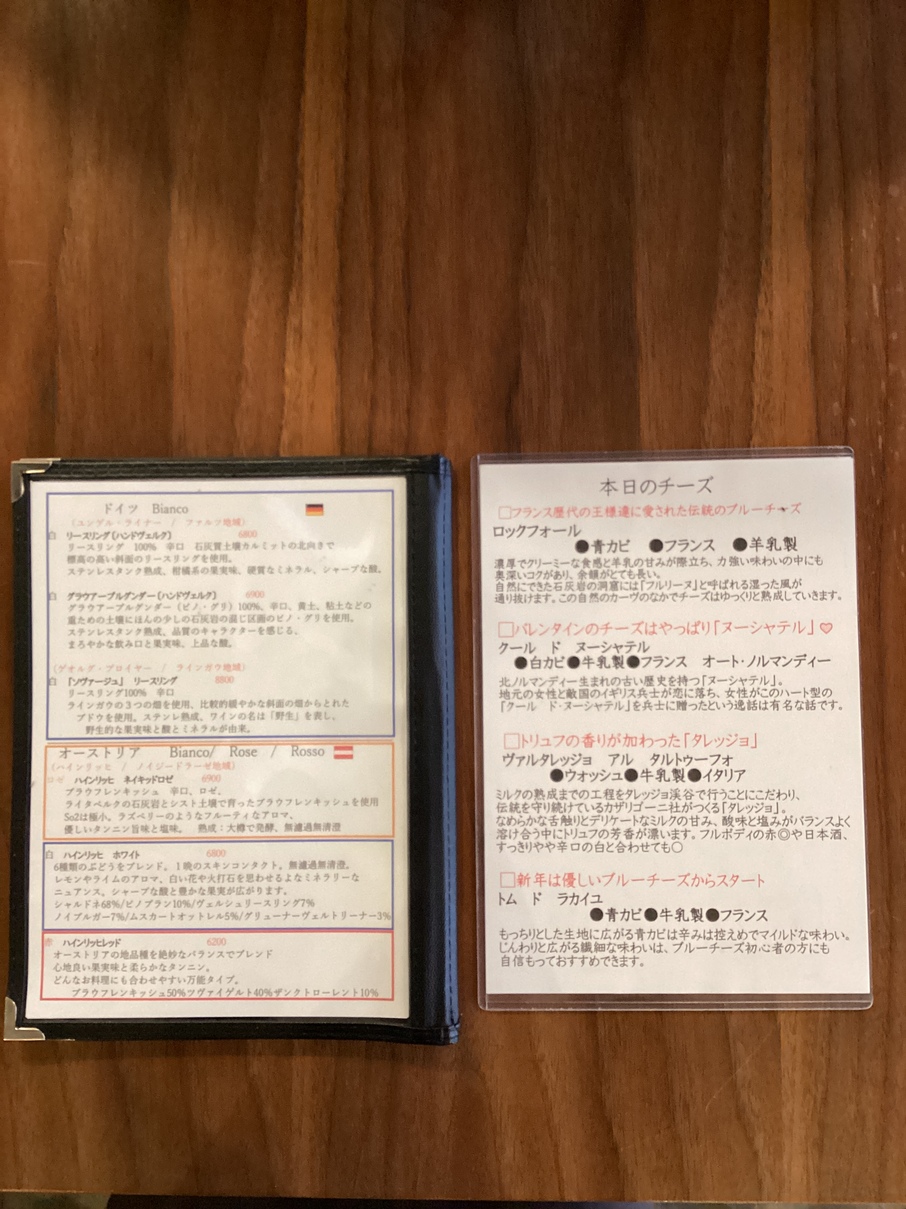 ドイツ Bianco
(ユンデル・ライナー / ファルツ地域)
白 リースリング(ハンドヴェルク) 6800
リースリング 100% 辛口 石灰質土壌カルミットの北向きで
標高の高い斜面のリースリングを使用。
ステンレスタンク熟成、柑橘系の果実味、硬質なミネラル、シャープな酸。
白 グラウアーブルグンダー(ハンドヴェルク) 6900
グラウアーブルグンダー(ピノ・グリ)100%、辛口、黄土、粘土などの
重ための土壌にほんの少しの石灰岩の混じ区画のピノ・グリを使用。
ステンレスタンク熟成、品質のキャラクターを感じる、
まろやかな飲み口と果実味、上品な酸。
(ゲオルグ・ブロイヤー / ラインガウ地域)
白 『ソヴァージュ』 リースリング 8800
リースリング100% 辛口
ラインガウの3つの畑を使用、比較的緩やかな斜面の畑からとれた
ブドウを使用。ステンレ熟成、ワインの名は「野生」を表し、
野生的な果実味と酸とミネラルが由来。
オーストリア Bianco/ Rose / Rosso
(ハインリッヒ / ノイジードラーゼ地域)
ロゼ ハインリッヒ ネイキッドロゼ 6900
ブラウフレンキッシュ 辛口、ロゼ。
ライタベルクの石灰岩とシスト土壌で育ったブラウフレンキッシュを使用
So2は極小。ラズベリーのようなフルーティなアロマ、
優しいタンニン旨味と塩味。 熟成:大樽で発酵、無濾過無清澄
白 ハインリッヒ ホワイト 6800
6種類のぶどうをブレンド。1晩のスキンコンタクト。無濾過無清澄。
レモンやライムのアロマ、白い花や火打石を思わせるよなミネラリーな
ニュアンス。シャープな酸と豊かな果実が広がります。
シャルドネ68%/ピノブラン10%/ヴェルシュリースリング7%
ノイブルガー7%/ムスカートオットレル5%/グリューナーヴェルトリーナー3%
赤 ハインリッヒレッド 6200
オーストリアの地品種を絶妙なバランスでブレンド
心地良い果実味と柔らかなタンニン。
どんなお料理にも合わせやすい万能タイプ。
ブラウフレンキッシュ50%ツヴァイゲルト40%ザンクトローレント10%
本日のチーズ
□フランス歴代の王様達に愛された伝統のブルーチーズ
ロックフォール
●青カビ ●フランス ●羊乳製
濃厚でクリーミーな食感と羊乳の甘みが際立ち、力強い味わいの中にも
奥深いコクがあり、余韻がとても長い。
自然にできた石灰岩の洞窟には「フルリーヌ」と呼ばれる湿った風が
通り抜けます。この自然のカーヴのなかでチーズはゆっくりと熟成していきます。
□バレンタインのチーズはやっぱり「ヌーシャテル」♡
クール ド ヌーシャテル
●白カビ●牛乳製●フランス オート・ノルマンディー
北ノルマンディー生まれの古い歴史を持つ「ヌーシャテル」。
地元の女性と敵国のイギリス兵士が恋に落ち、女性がこのハート型の
「クール ド・ヌーシャテル」を兵士に贈ったという逸話は有名な話です。
□トリュフの香りが加わった「タレッジョ」
ヴァルタレッジョ アル タルトゥーフォ
●ウォッシュ●牛乳製●イタリア
ミルクの熟成までの工程をタレッジョ渓谷で行うことにこだわり、
伝統を守り続けているカザリゴーニ社がつくる「タレッジョ」。
なめらかな舌触りとデリケートなミルクの甘み、酸味と塩みがバランスよく
溶け合う中にトリュフの芳香が漂います。フルボディの赤◎や日本酒、
すっきりやや辛口の白と合わせても〇
□新年は優しいブルーチーズからスタート
トム ド ラカイユ
●青カビ●牛乳製●フランス
もっちりとした生地に広がる青カビは辛みは控えめでマイルドな味わい。
じんわりと広がる繊細な味わいは、ブルーチーズ初心者の方にも
自信もっておすすめできます。